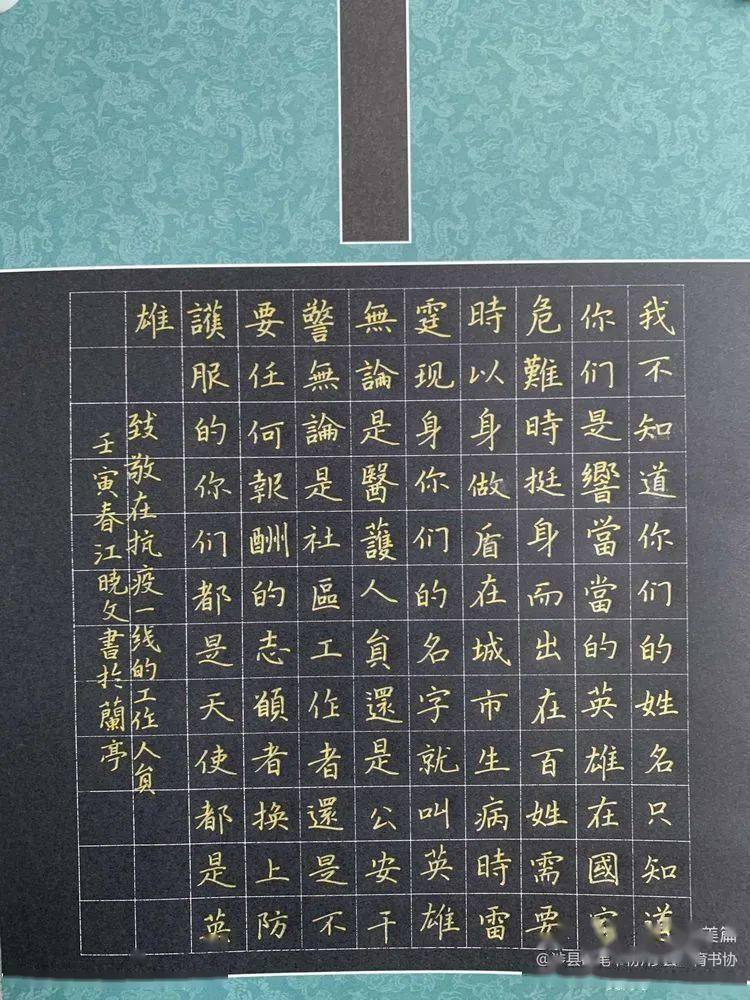 我不知道你们的姓名只知道
你们是響當當的英雄在國家
危難時挺身而出在百姓需要
時以身做盾在城市生病時雷
霆现身你们的名字就叫英雄
無論是醫護人員還是公安干
警無論是社區工作者還是不
要任何報酬的志願者換上防
護服的你们都是天使都是英
雄
致敬在抗疫一线的工作人員
壬寅春江晓文書於蘭亭
美篇
@涉县
育书协